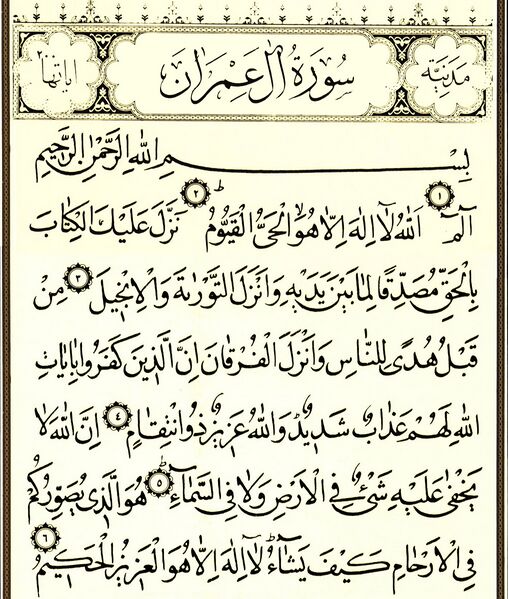 مدنية سورة اٰل عمران اياتها ٢
بِسْمِ اللّٰهِ الرَّحْمٰنِ الرَّحِيمِ
الٓمٓ ۝١ اَللّٰهُ لَٓا اِلٰهَ اِلَّا هُوَ الْحَيُّ الْقَيُّومُ ۝٢ نَزَّلَ عَلَيْكَ الْكِتَابَ
بِالْحَقِّ مُصَدِّقًا لِمَا بَيْنَ يَدَيْهِ وَاَنْزَلَ التَّوْرٰيةَ وَالْاِنْجٖيلَ ۝٣ مِنْ
قَبْلُ هُدًى لِلنَّاسِ وَاَنْزَلَ الْفُرْقَانَ اِنَّ الَّذٖينَ كَفَرُوا بِاٰيَاتِ
اللّٰهِ لَهُمْ عَذَابٌ شَدٖيدٌ وَاللّٰهُ عَزٖيزٌ ذُوانْتِقَامٍ ۝٤ اِنَّ اللّٰهَ لَا
يَخْفٰى عَلَيْهِ شَيْءٌ فِي الْاَرْضِ وَلَا فِي السَّمَٓاءِ ۝٥ هُوَ الَّذٖي يُصَوِّرُكُمْ
فِي الْاَرْحَامِ كَيْفَ يَشَٓاءُ لَٓا اِلٰهَ اِلَّا هُوَ الْعَزٖيزُ الْحَكٖيمُ ۝٦